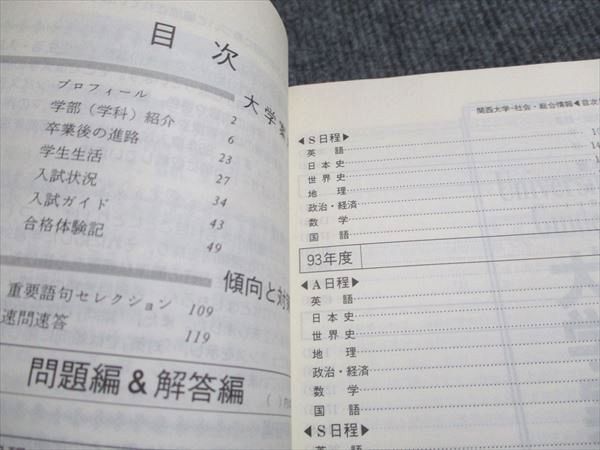 目次
大学案
プロフィール
2
学部（学科）紹介
6
卒業後の進路
23
学生生活
27
入試状況
34
入試ガイド
43
合格体験記
49
傾向と対策
重要語句セレクション 109
速問速答 119
問題編 & 解答編
関西大学-社会・総合情報◀目次
◀S日程▶
英語
日本史
世界史
地理
政治・経済
数学
国語
93年度
◀A日程▶
英語
日本史
世界史
地理
政治・経済
数学
国語
◀S日程▶
英語